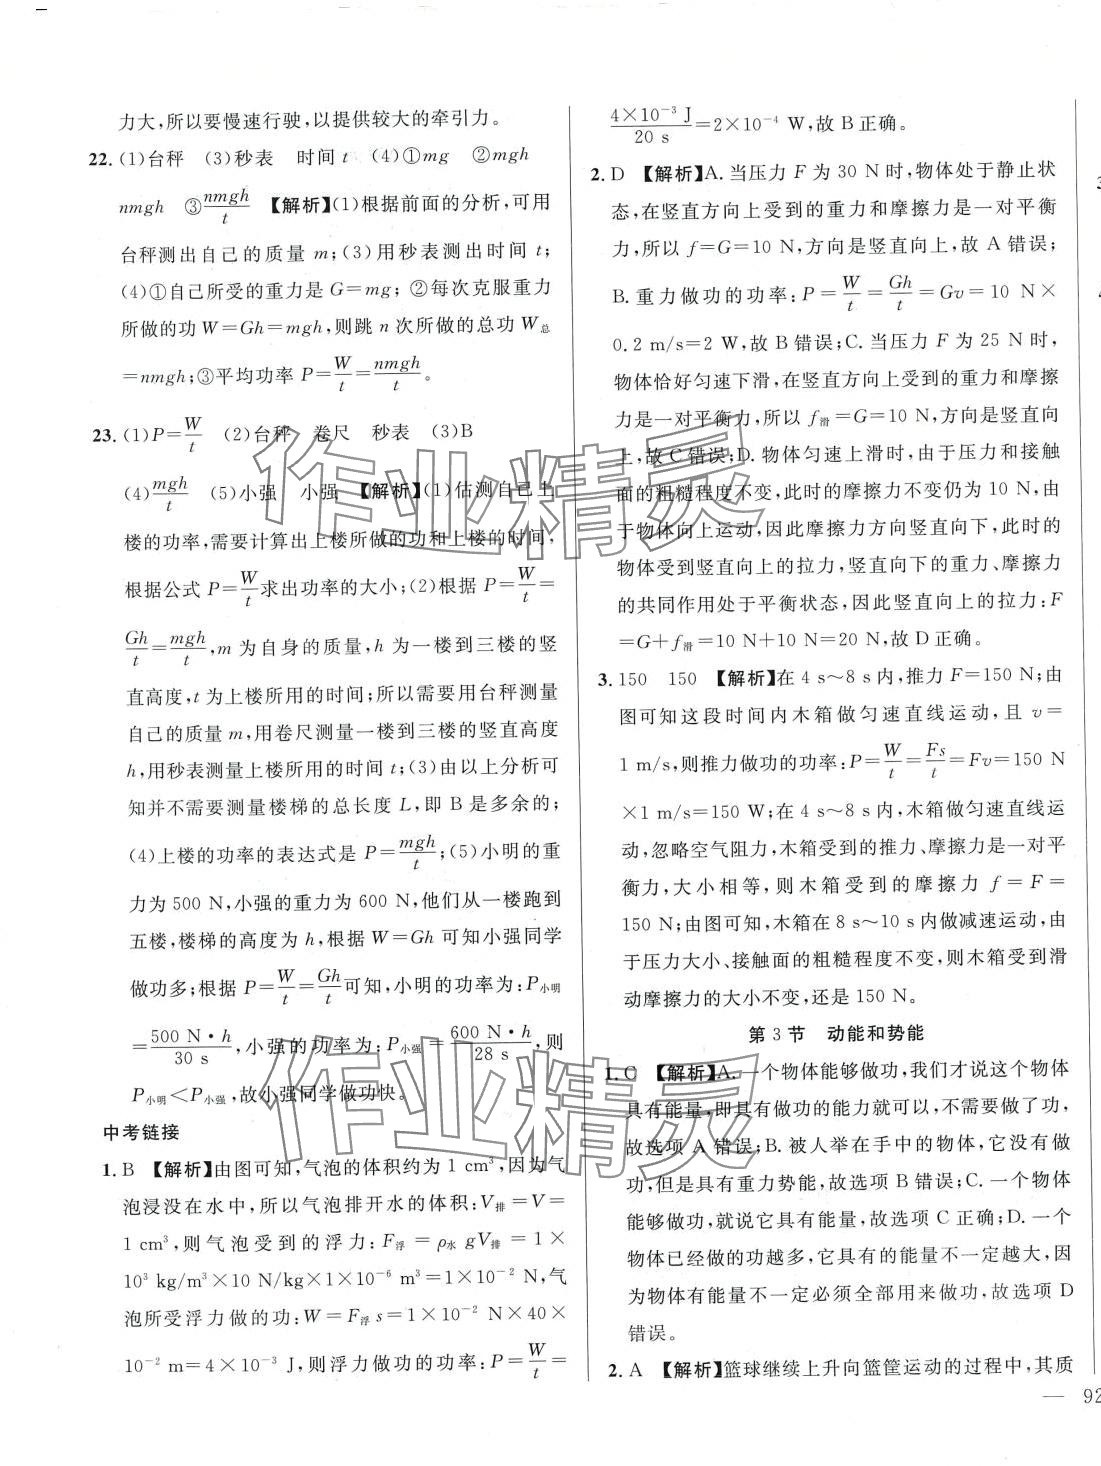 力大,所以要慢速行驶,以提供较大的牵引力。
22. (1)台秤 (3)秒表 时间 t (4)①mg ②mgh
nmgh ③nmgh/t 【解析】(1)根据前面的分析,可用
台秤测出自己的质量 m;(3)用秒表测出时间 t;
(4)①自己所受的重力是 G=mg; ②每次克服重力
所做的功 W=Gh=mgh,则跳 n 次所做的总功 W总
=nmgh;③平均功率 P=W/t=nmgh/t。
23. (1)P=W/t (2)台秤 卷尺 秒表 (3)B
(4)mgh/t (5)小强 小强 【解析】(1)估测自己上
楼的功率,需要计算出上楼所做的功和上楼的时间,
根据公式 P=W/t求出功率的大小;(2)根据 P=W/t=
Gh/t=mgh/t,m 为自身的质量,h 为一楼到三楼的竖
直高度,t 为上楼所用的时间;所以需要用台秤测量
自己的质量 m,用卷尺测量一楼到三楼的竖直高度
h,用秒表测量上楼所用的时间 t;(3)由以上分析可
知并不需要测量楼梯的总长度 L,即 B 是多余的;
(4)上楼的功率的表达式是 P=mgh/t;(5)小明的重
力为 500 N,小强的重力为 600 N,他们从一楼跑到
五楼,楼梯的高度为 h,根据 W=Gh 可知小强同学
做功多;根据 P=W/t=Gh/t可知,小明的功率为:P小明
=500 N·h/30 s,小强的功率为:P小强=600 N·h/28 s,则
P小明<P小强,故小强同学做功快。
中考链接
1. B 【解析】由图可知,气泡的体积约为 1 cm³,因为气
泡浸没在水中,所以气泡排开水的体积:V排=V=
1 cm³,则气泡受到的浮力:F浮=ρ水gV排=1×
10³ kg/m³×10 N/kg×1×10⁻⁶ m³=1×10⁻² N,气
泡所受浮力做的功:W=F浮s=1×10⁻² N×40×
10⁻² m=4×10⁻³ J,则浮力做功的功率:P=W/t=
4×10⁻³ J/20 s=2×10⁻⁴ W,故 B 正确。
2. D 【解析】A. 当压力 F 为 30 N 时,物体处于静止状
态,在竖直方向上受到的重力和摩擦力是一对平衡
力,所以 f=G=10 N,方向是竖直向上,故 A 错误;
B. 重力做功的功率:P=W/t=Gh/t=Gv=10 N×
0.2 m/s=2 W,故 B 错误;C. 当压力 F 为 25 N 时,
物体恰好匀速下滑,在竖直方向上受到的重力和摩擦
力是一对平衡力,所以 f滑=G=10 N,方向是竖直向
上,故 C 错误;D. 物体匀速上滑时,由于压力和接触
面的粗糙程度不变,此时的摩擦力不变仍为 10 N,由
于物体向上运动,因此摩擦力方向竖直向下,此时的
物体受到竖直向上的拉力,竖直向下的重力、摩擦力
的共同作用处于平衡状态,因此竖直向上的拉力:F
=G+f滑=10 N+10 N=20 N,故 D 正确。
3. 150 150 【解析】在 4 s~8 s 内,推力 F=150 N;由
图可知这段时间内木箱做匀速直线运动,且 v=
1 m/s,则推力做功的功率:P=W/t=Fs/t=Fv=150 N
×1 m/s=150 W;在 4 s~8 s 内,木箱做匀速直线运
动,忽略空气阻力,木箱受到的推力、摩擦力是一对平
衡力,大小相等,则木箱受到的摩擦力 f=F=
150 N;由图可知,木箱在 8 s~10 s 内做减速运动,由
于压力大小、接触面的粗糙程度不变,则木箱受到滑
动摩擦力的大小不变,还是 150 N。
第 3 节 动能和势能
1. C 【解析】A. 一个物体能够做功,我们才说这个物体
具有能量,即具有做功的能力就可以,不需要做了功,
故选项 A 错误;B. 被人举在手中的物体,它没有做
功,但是具有重力势能,故选项 B 错误;C. 一个物体
能够做功,就说它具有能量,故选项 C 正确;D. 一个
物体已经做的功越多,它具有的能量不一定越大,因
为物体有能量不一定必须全部用来做功,故选项 D
错误。
2. A 【解析】篮球继续上升向篮筐运动的过程中,其质
— 92
作业精灵
作业精灵